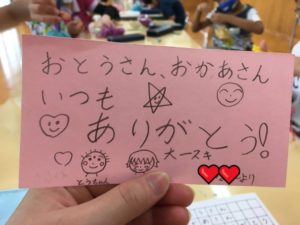 おとうさん、おかあさん
いつも
ありがとう!
大一スキ
とうちゃん
より